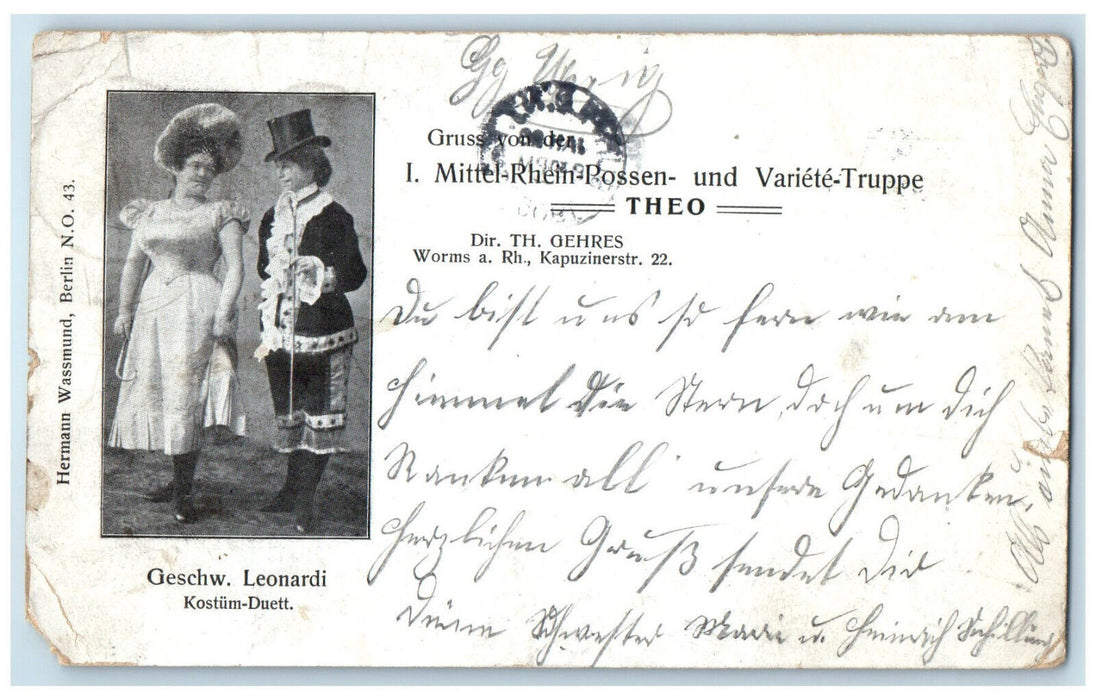 Gg
Gruss von der
I. Mittel-Rhein-Possen- und Variété-Truppe
THEO
Dir. TH. GEHRES
Worms a. Rh., Kapuzinerstr. 22.
Hermann Wassmund, Berlin N.O. 43.
Geschw. Leonardi
Kostüm-Duett.
Du bist uns so fern wie am
Himmel die Stern, doch um dich
Ranken all unsere Gedanken,
herzlichen Gruß sendet dir
Deine Schwester Marie u. Heinrich Schilling
Anna